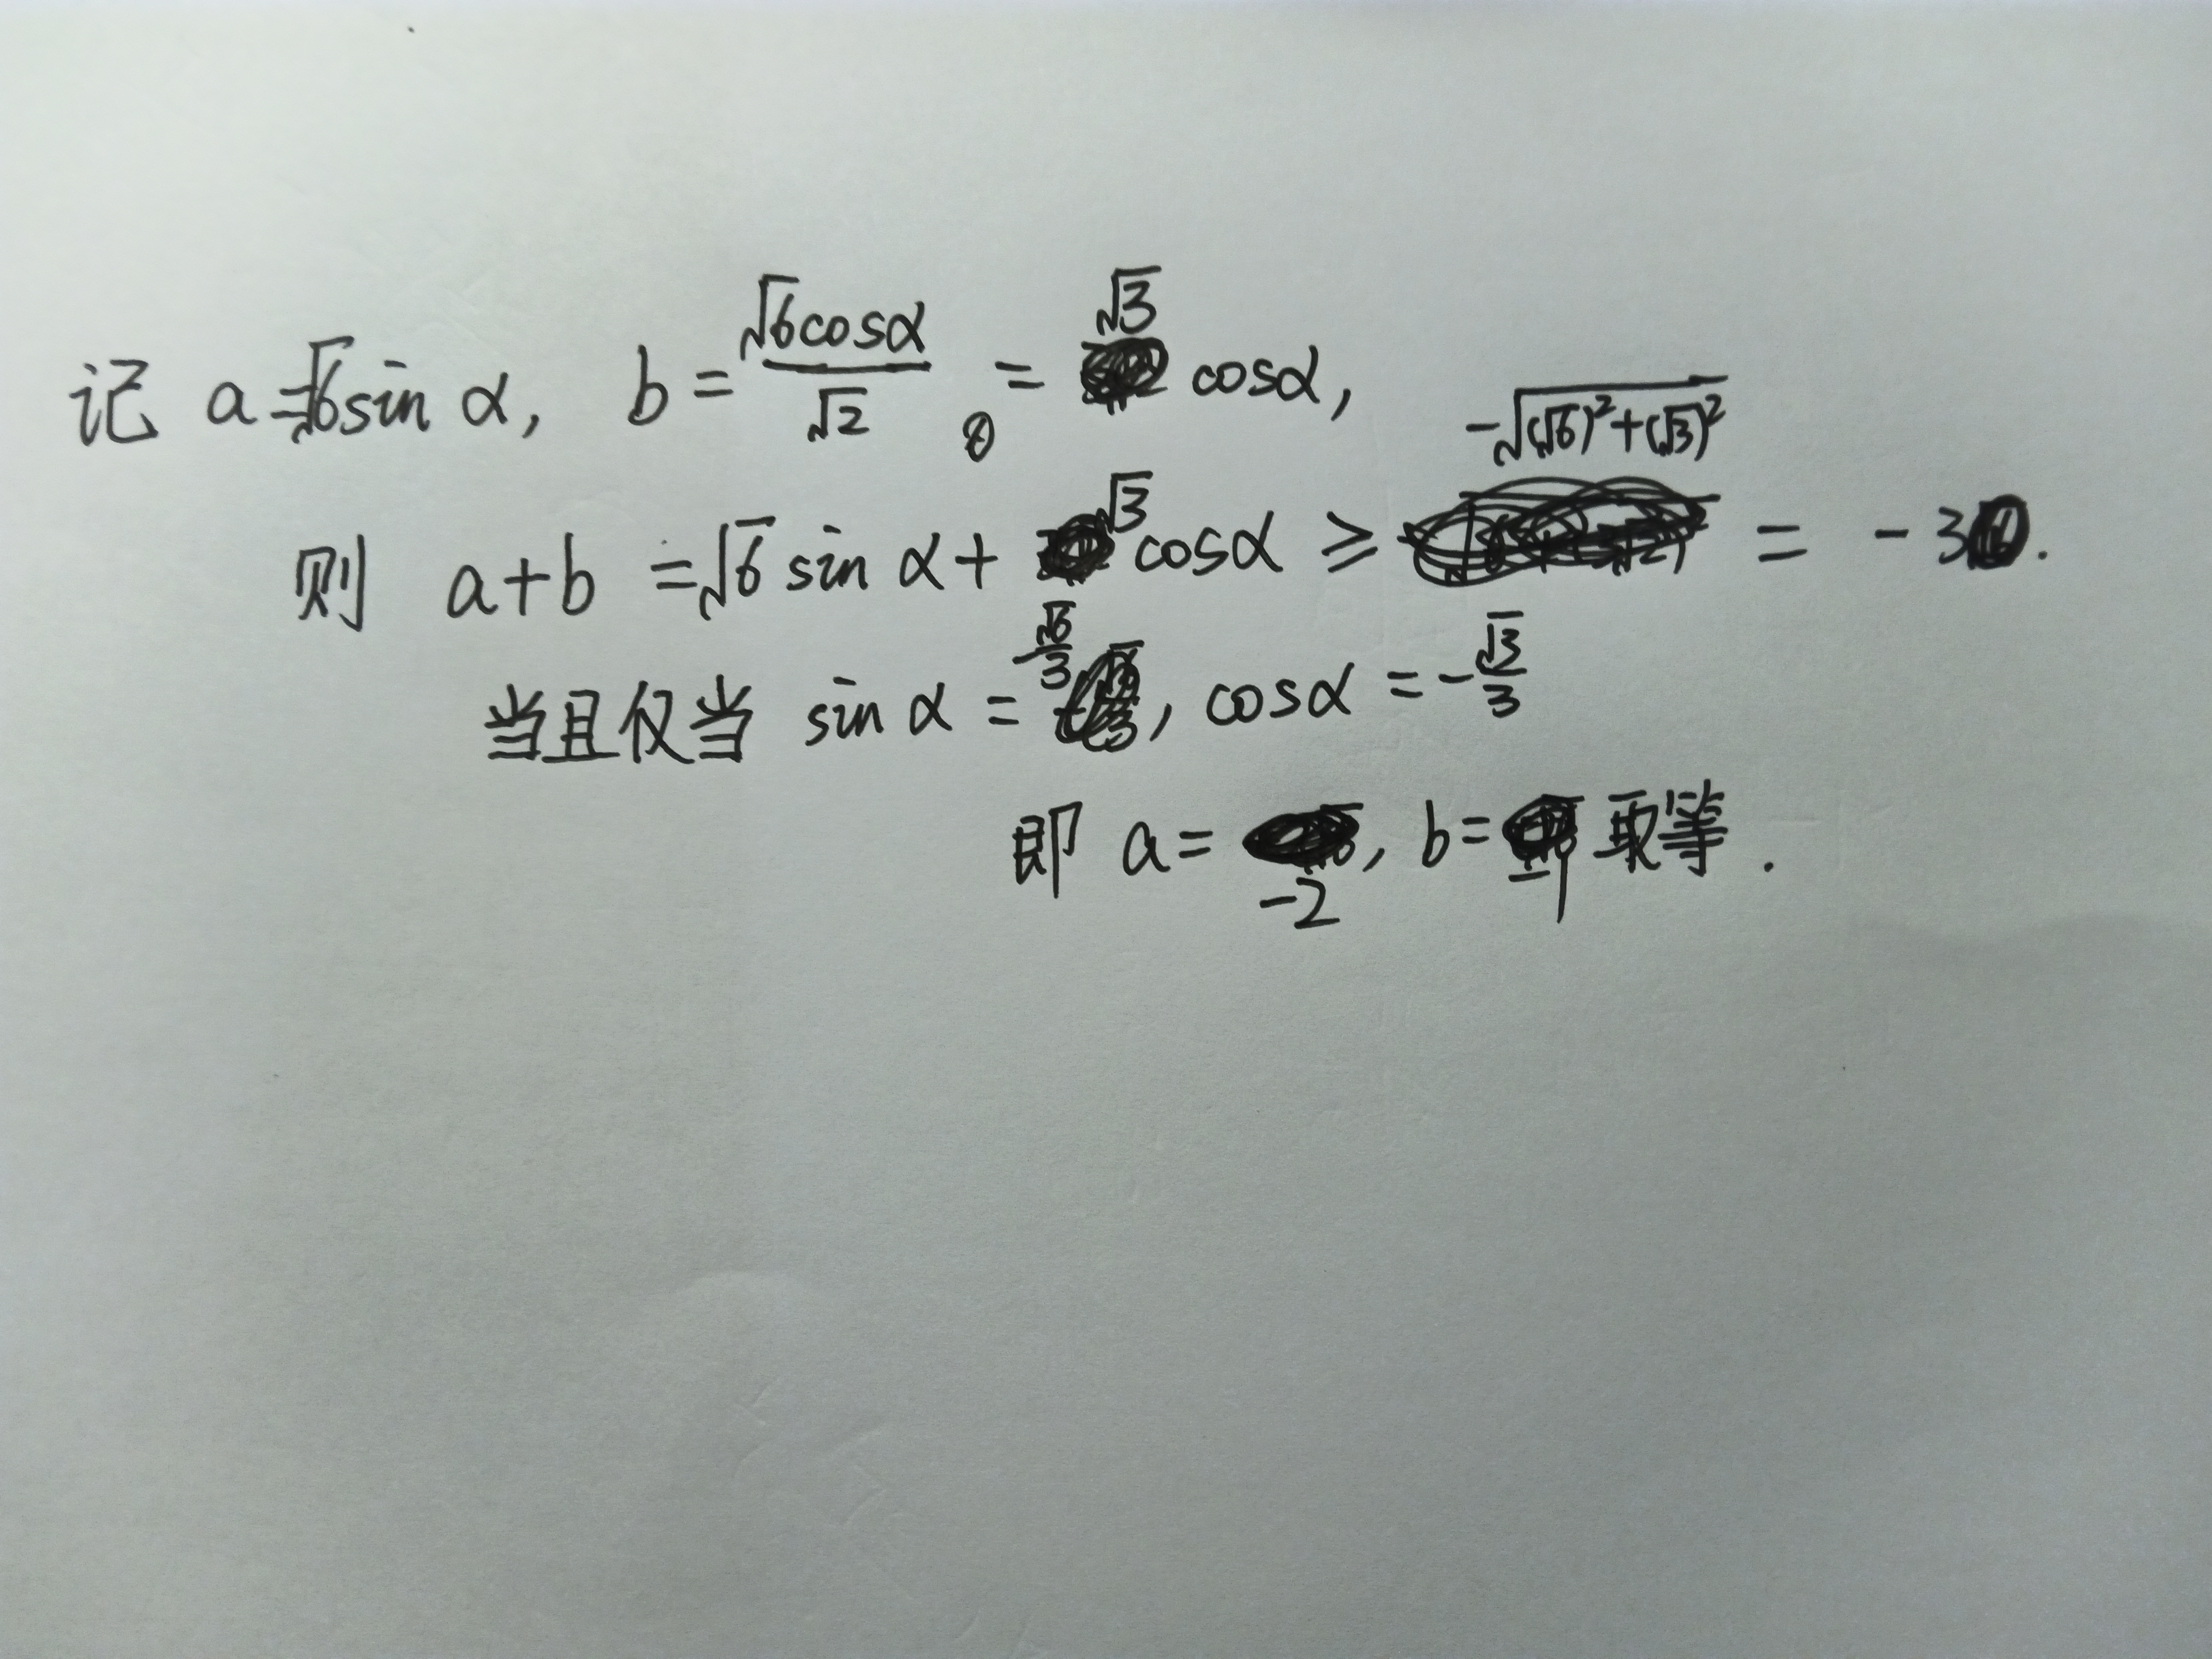 记 a=√6sin α, b=√6cosα/√2 = √3 cosα,
则 a+b =√6 sin α+ √3 cosα ≥ -√((√6)²+(√3)²) = -3.
当且仅当 sin α = -√6/3, cosα = -√3/3
即 a= -2, b= -1 取等.